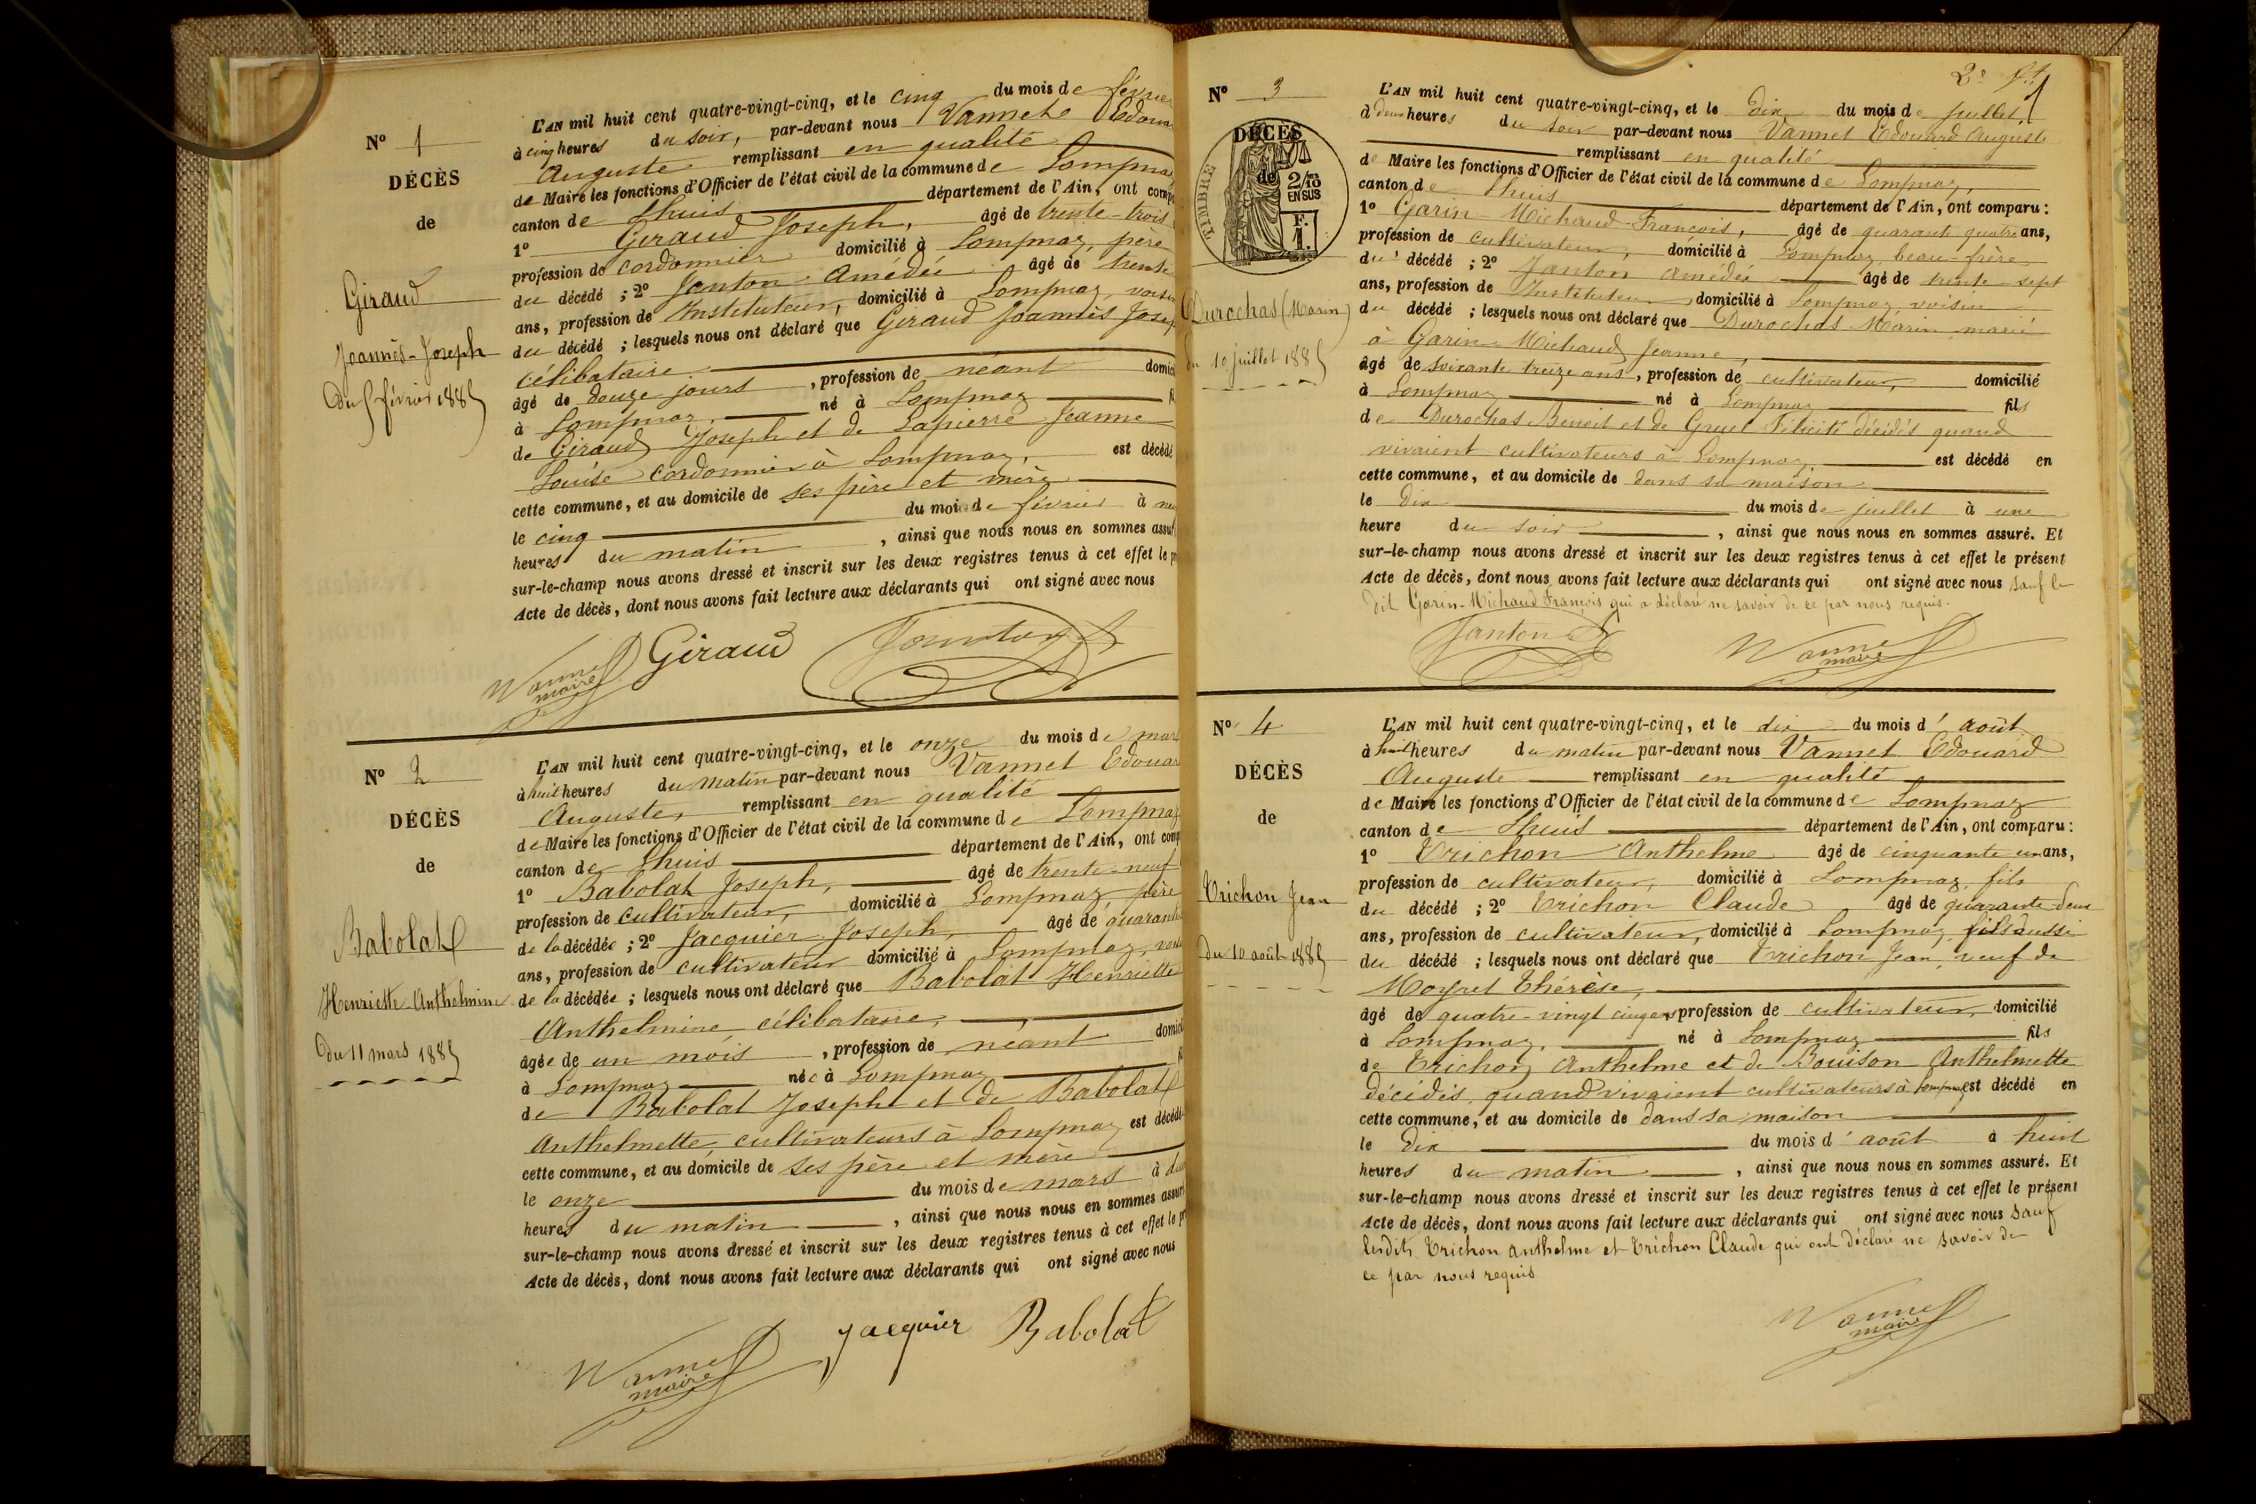 N° 1
DÉCÈS
de
Giraud
Joannès-Joseph
Du 5 février 1885
L'AN mil huit cent quatre-vingt-cinq, et le cinq du mois de février
à cinq heures du soir, par-devant nous Vannet Edoua
Auguste remplissant en qualité
de Maire les fonctions d'Officier de l'état civil de la commune de Lompnaz
canton de Lhuis département de l'Ain, ont comp
1° Giraud Joseph, âgé de trente-trois
profession de cordonnier domicilié à Lompnaz, père
du décédé ; 2° Janton Amédée âgé de trente
ans, profession de Instituteur, domicilié à Lompnaz, voisin
du décédé ; lesquels nous ont déclaré que Giraud Joannès Josep
célibataire
âgé de douze jours, profession de néant domici
à Lompnaz, né à Lompnaz fi
de Giraud Joseph et de Lapierre Jeanne
Louise cordonnier à Lompnaz, est décédé
cette commune, et au domicile de ses père et mère
le cinq du mois de février à ne
heures du matin, ainsi que nous nous en sommes assur
sur-le-champ nous avons dressé et inscrit sur les deux registres tenus à cet effet le pr
Acte de décès, dont nous avons fait lecture aux déclarants qui ont signé avec nous
Vannet maire Giraud Janton
N° 2
DÉCÈS
de
Babolat
Henriette-Anthelmine
Du 11 mars 1885
L'AN mil huit cent quatre-vingt-cinq, et le onze du mois de mars
à huit heures du matin par-devant nous Vannet Edouar
Auguste, remplissant en qualité
de Maire les fonctions d'Officier de l'état civil de la commune de Lompnaz
canton de Lhuis département de l'Ain, ont comp
1° Babolat Joseph, âgé de trente-neuf
profession de cultivateur, domicilié à Lompnaz, père
de la décédée ; 2° Jacquier Joseph, âgé de quarante
ans, profession de cultivateur domicilié à Lompnaz, voisi
de la décédée ; lesquels nous ont déclaré que Babolat Henriette
Anthelmine célibataire,
âgée de un mois, profession de néant domici
à Lompnaz née à Lompnaz fi
de Babolat Joseph et de Babolat
Anthelmette, cultivateurs à Lompnaz est décédé
cette commune, et au domicile de ses père et mère
le onze du mois de mars à
heures du matin, ainsi que nous nous en sommes assur
sur-le-champ nous avons dressé et inscrit sur les deux registres tenus à cet effet le pr
Acte de décès, dont nous avons fait lecture aux déclarants qui ont signé avec nous
Vannet maire Jacquier Babolat
N° 3
DÉCÈS
de
TIMBRE
2/10
EN SUS
F.
1.
Durochas (Marin)
du 10 juillet 1885
L'AN mil huit cent quatre-vingt-cinq, et le dix du mois de juillet
à deux heures du soir par-devant nous Vannet Edouard Auguste
remplissant en qualité
de Maire les fonctions d'Officier de l'état civil de la commune de Lompnaz,
canton de Lhuis département de l'Ain, ont comparu :
1° Garin-Michaud François, âgé de quarante quatre ans,
profession de cultivateur, domicilié à Lompnaz, beau-frère
du décédé ; 2° Janton Amédée âgé de trente sept
ans, profession de Instituteur, domicilié à Lompnaz voisin
du décédé ; lesquels nous ont déclaré que Durochas Marin marié
à Garin-Michaud Jeanne,
âgé de soixante treize ans, profession de cultivateur, domicilié
à Lompnaz né à Lompnaz fils
de Durochas Benoit et de Gruel Félicité décédés quand
vivaient cultivateurs à Lompnaz est décédé en
cette commune, et au domicile de dans sa maison
le dix du mois de juillet à une
heure du soir, ainsi que nous nous en sommes assuré. Et
sur-le-champ nous avons dressé et inscrit sur les deux registres tenus à cet effet le présent
Acte de décès, dont nous avons fait lecture aux déclarants qui ont signé avec nous sauf le
dit Garin-Michaud François qui a déclaré ne savoir de ce par nous requis.
Janton Vannet maire
N° 4
DÉCÈS
de
Trichon Jean
Du 10 août 1885
L'AN mil huit cent quatre-vingt-cinq, et le dix du mois d'août
à huit heures du matin par-devant nous Vannet Edouard
Auguste remplissant en qualité
de Maire les fonctions d'Officier de l'état civil de la commune de Lompnaz
canton de Lhuis département de l'Ain, ont comparu :
1° Trichon Anthelme âgé de cinquante un ans,
profession de cultivateur, domicilié à Lompnaz, fils
du décédé ; 2° Trichon Claude âgé de quarante-deux
ans, profession de cultivateur, domicilié à Lompnaz, fils aussi
du décédé ; lesquels nous ont déclaré que Trichon Jean, veuf de
Moyret Thérèse,
âgé de quatre-vingt cinq ans, profession de cultivateur, domicilié
à Lompnaz, né à Lompnaz fils
de Trichon Anthelme et de Bouison Anthelmette
décédés, quand vivaient cultivateurs à Lompnaz est décédé en
cette commune, et au domicile de dans sa maison
le dix du mois d'août à huit
heures du matin, ainsi que nous nous en sommes assuré. Et
sur-le-champ nous avons dressé et inscrit sur les deux registres tenus à cet effet le présent
Acte de décès, dont nous avons fait lecture aux déclarants qui ont signé avec nous sauf
lesdits Trichon Anthelme et Trichon Claude qui ont déclaré ne savoir de
ce par nous requis
Vannet maire